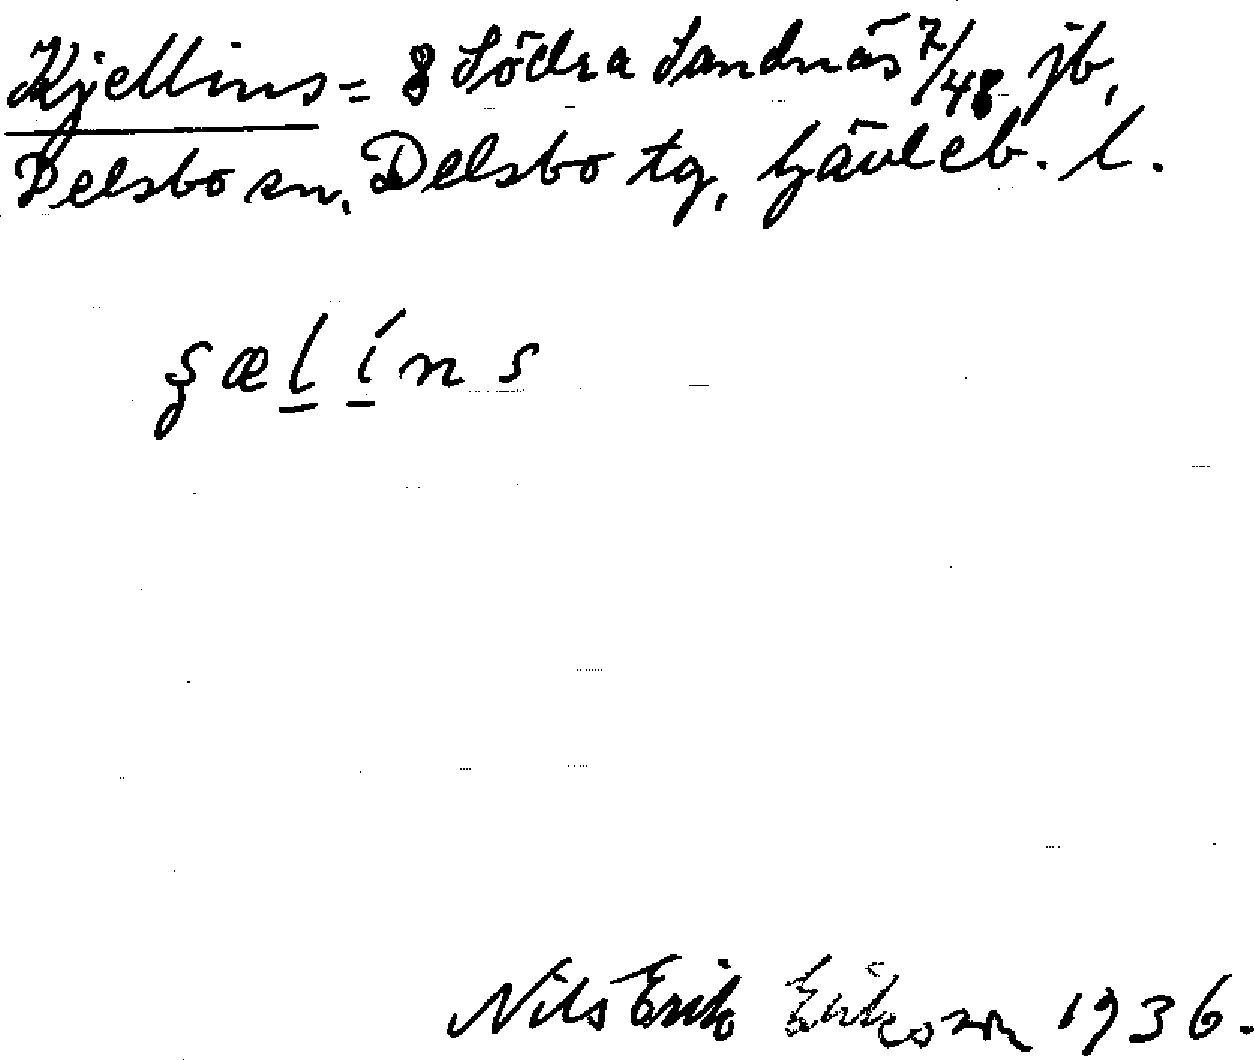 Kjellins = 8 Södra Sandnäs 7/48 jb,
Delsbo sn, Delsbo tg, Gävleb. l.
Nils Erik Erikson 1936.